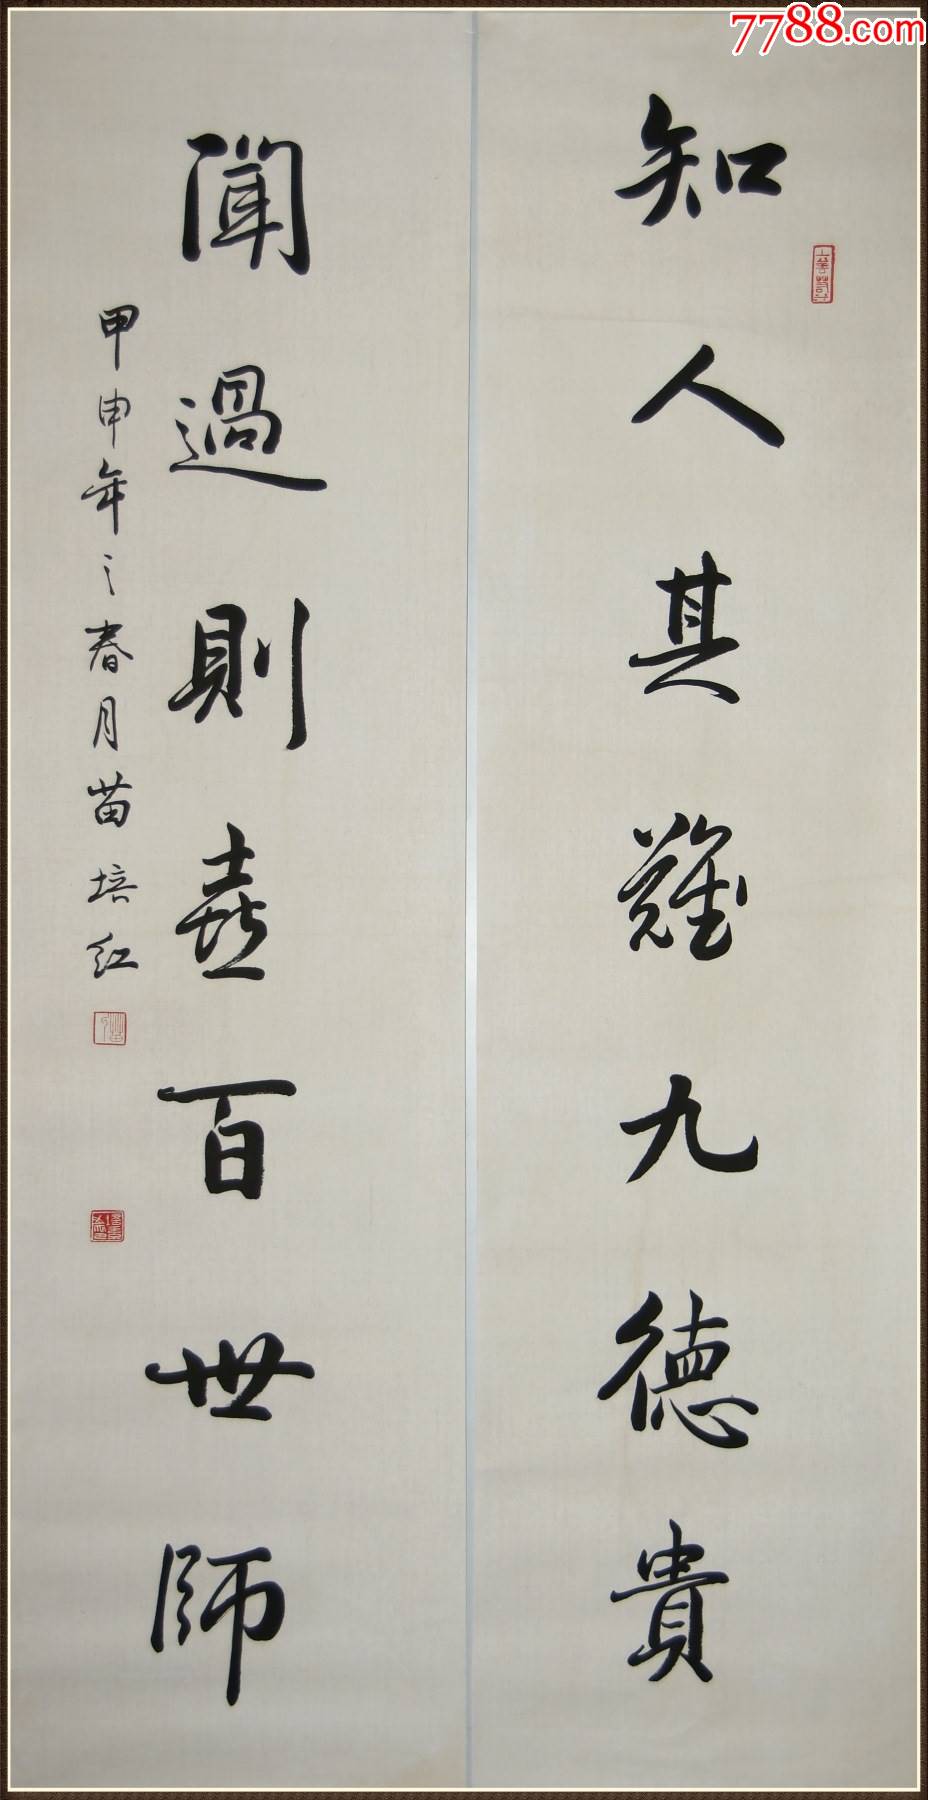 7788.com
知人其難九德貴
聞過則喜百世師
甲申年之春月苗培红